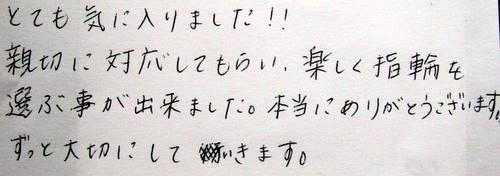 とても気に入りました!!
親切に対応してもらい、楽しく指輪を
選ぶ事が出来ました。本当にありがとうございます。
ずっと大切にしていきます。